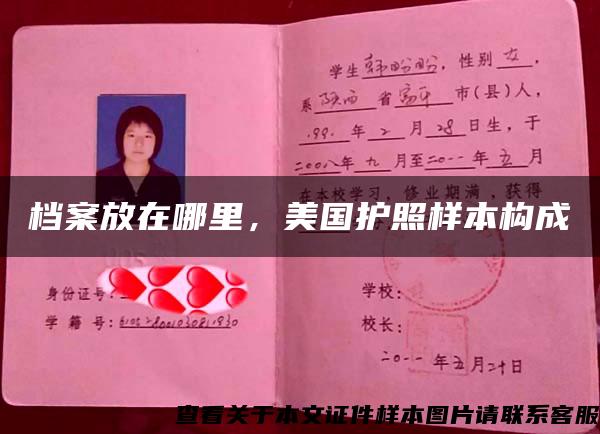 学生韩盼盼，性别女，
系陕西省富平市(县)人，
199 年2月28日生，于
二00八年九月至二0一一年五月
在本校学习，修业期满，获得
档案放在哪里，美国护照样本构成
身份证号：
学籍号：
学校：
校长：
二0一一年五月二十日
查看关于本文证件样本图片请联系客服